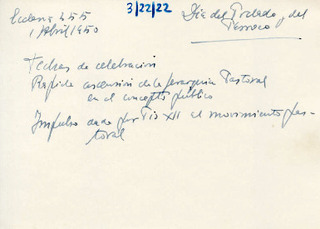 Ecclesia 455
1 Abril 1950
3/22/22
Día del Prelado y del
Párroco
Fechas de celebración
Rápida ascensión de la jerarquía Pastoral
en el concepto público
Impulso dado por Pio XII al movimiento pas-
toral